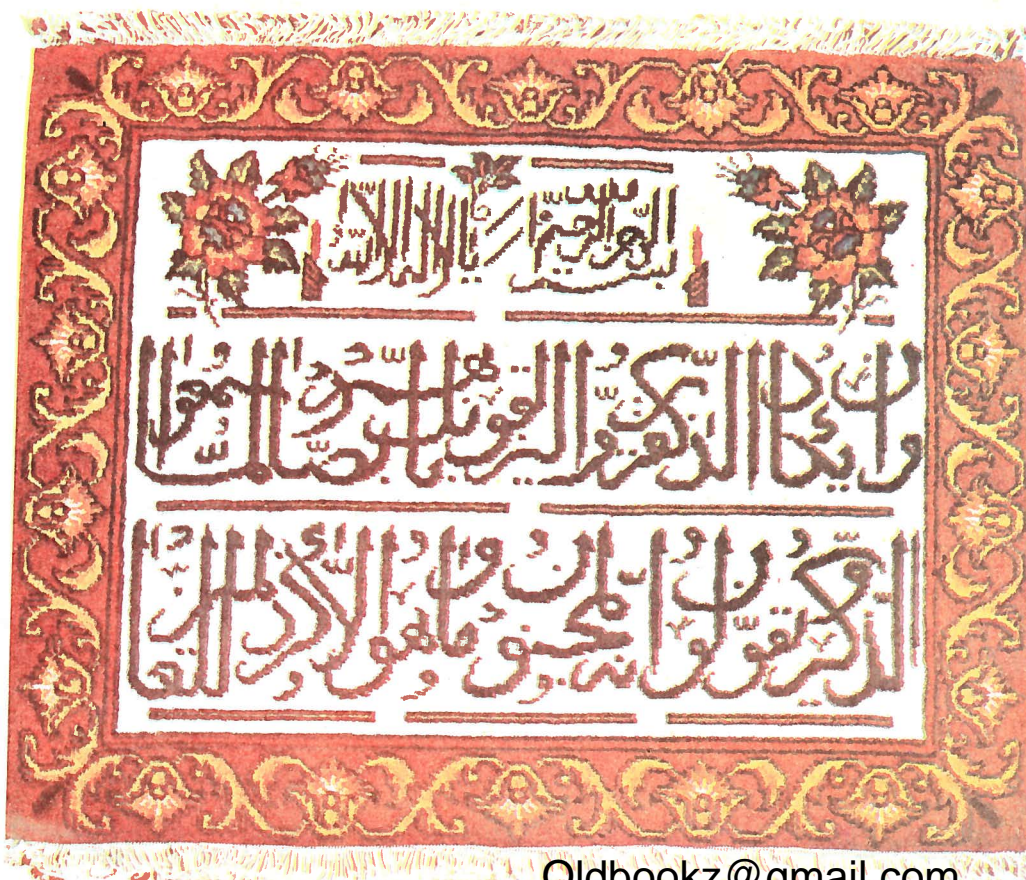 بسم الله الرحمن الرحيم
وان يكاد الذين كفروا ليزلقونك بابصارهم لما سمعوا
الذكر ويقولون انه لمجنون وما هو الا ذكر للعالمين
Oldbookz@gmail.com